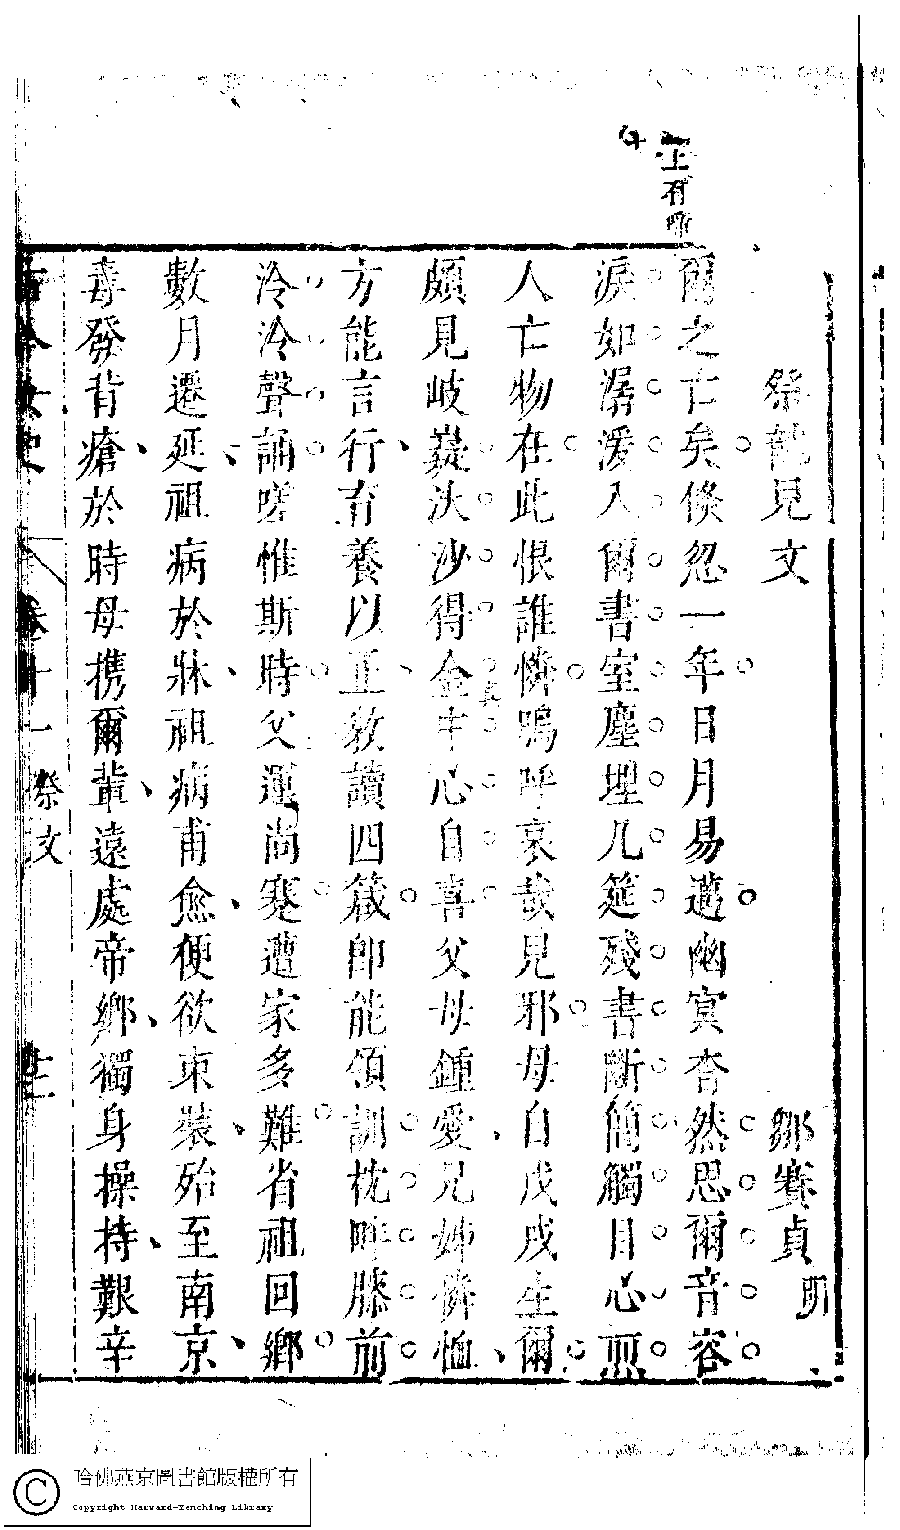 上有
祭龍兒文
鄒賽貞 明
爾之亡矣倏忽一年日月易邁幽冥杳然思爾音容
淚如潺湲入爾書室塵埋几筵殘書斷簡觸目心煎
人亡物在此恨誰憐嗚呼哀哉兒邪母自戊戌生爾
頗見岐嶷汰沙得金中心自喜父母鍾愛兄姊憐恤
方能言行育養以正教讀四箴即能領訓枕畔膝前
泠泠聲誦嗟惟斯時父運尚蹇遭家多難省祖回鄉
數月遷延祖病於牀祖病甫愈便欲束裝殆至南京
毒發背瘡於時母携爾輩遠處帝鄉獨身操持艱辛
古今女史
卷十一
祭文
哈佛燕京圖書館版權所有
Copyright Harvard-Yenching Library